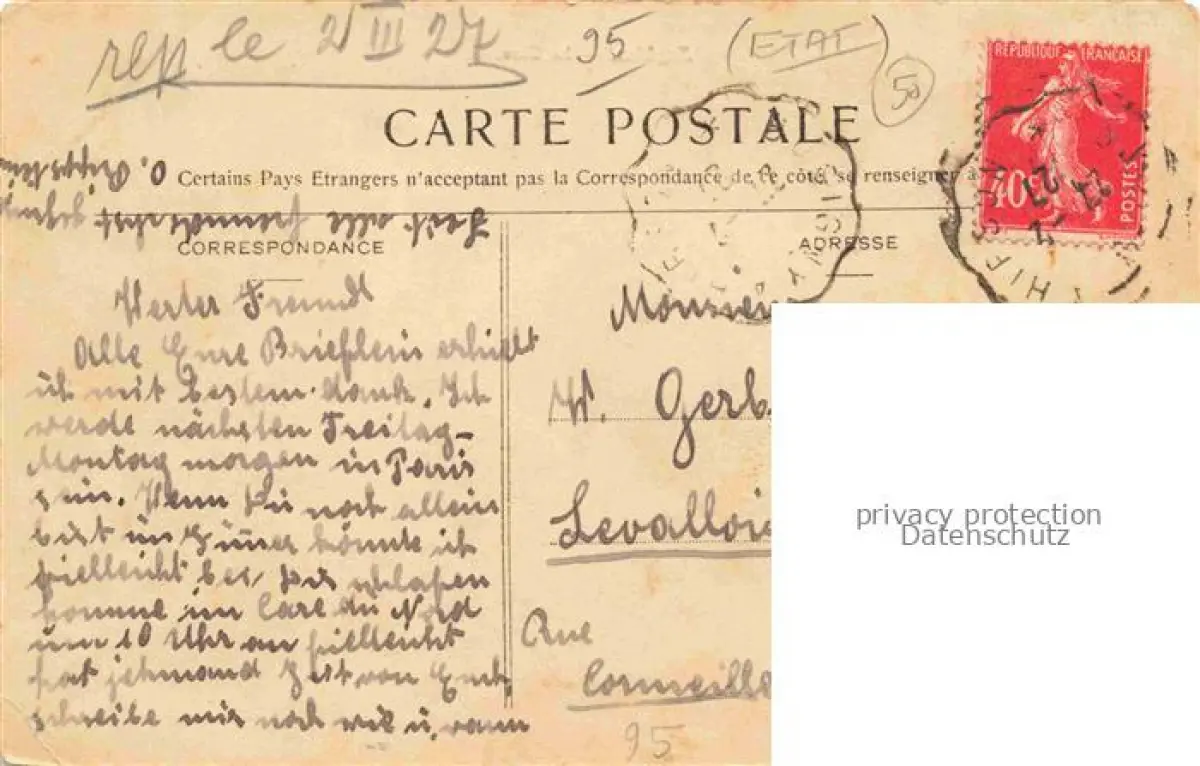 rep. le 2 III 27
95
(ETAT)
50
REPUBLIQUE FRANÇAISE
40c
POSTES
CARTE POSTALE
Certains Pays Etrangers n'acceptant pas la Correspondance de ce côté, se renseigner à
CORRESPONDANCE
ADRESSE
Werter Freund
Alle Eure Brieflein erhielt
ich mit bestem dank. Ich
werde nächsten Freitag-
Montag morgen in Paris
sein. Wenn Du noch allein
bist im Zimer könnte ich
fielleicht bei Dir schlafen
komme im Care du Nord
um 10 Uhr an fielleicht
hat jehmand Zeit von Euch,
schreibe mir noch wie u, wann
Seit alle
O.
Monsieu
W. Gerb
Levallois
Rue
Corneille
95
privacy protection
Datenschutz